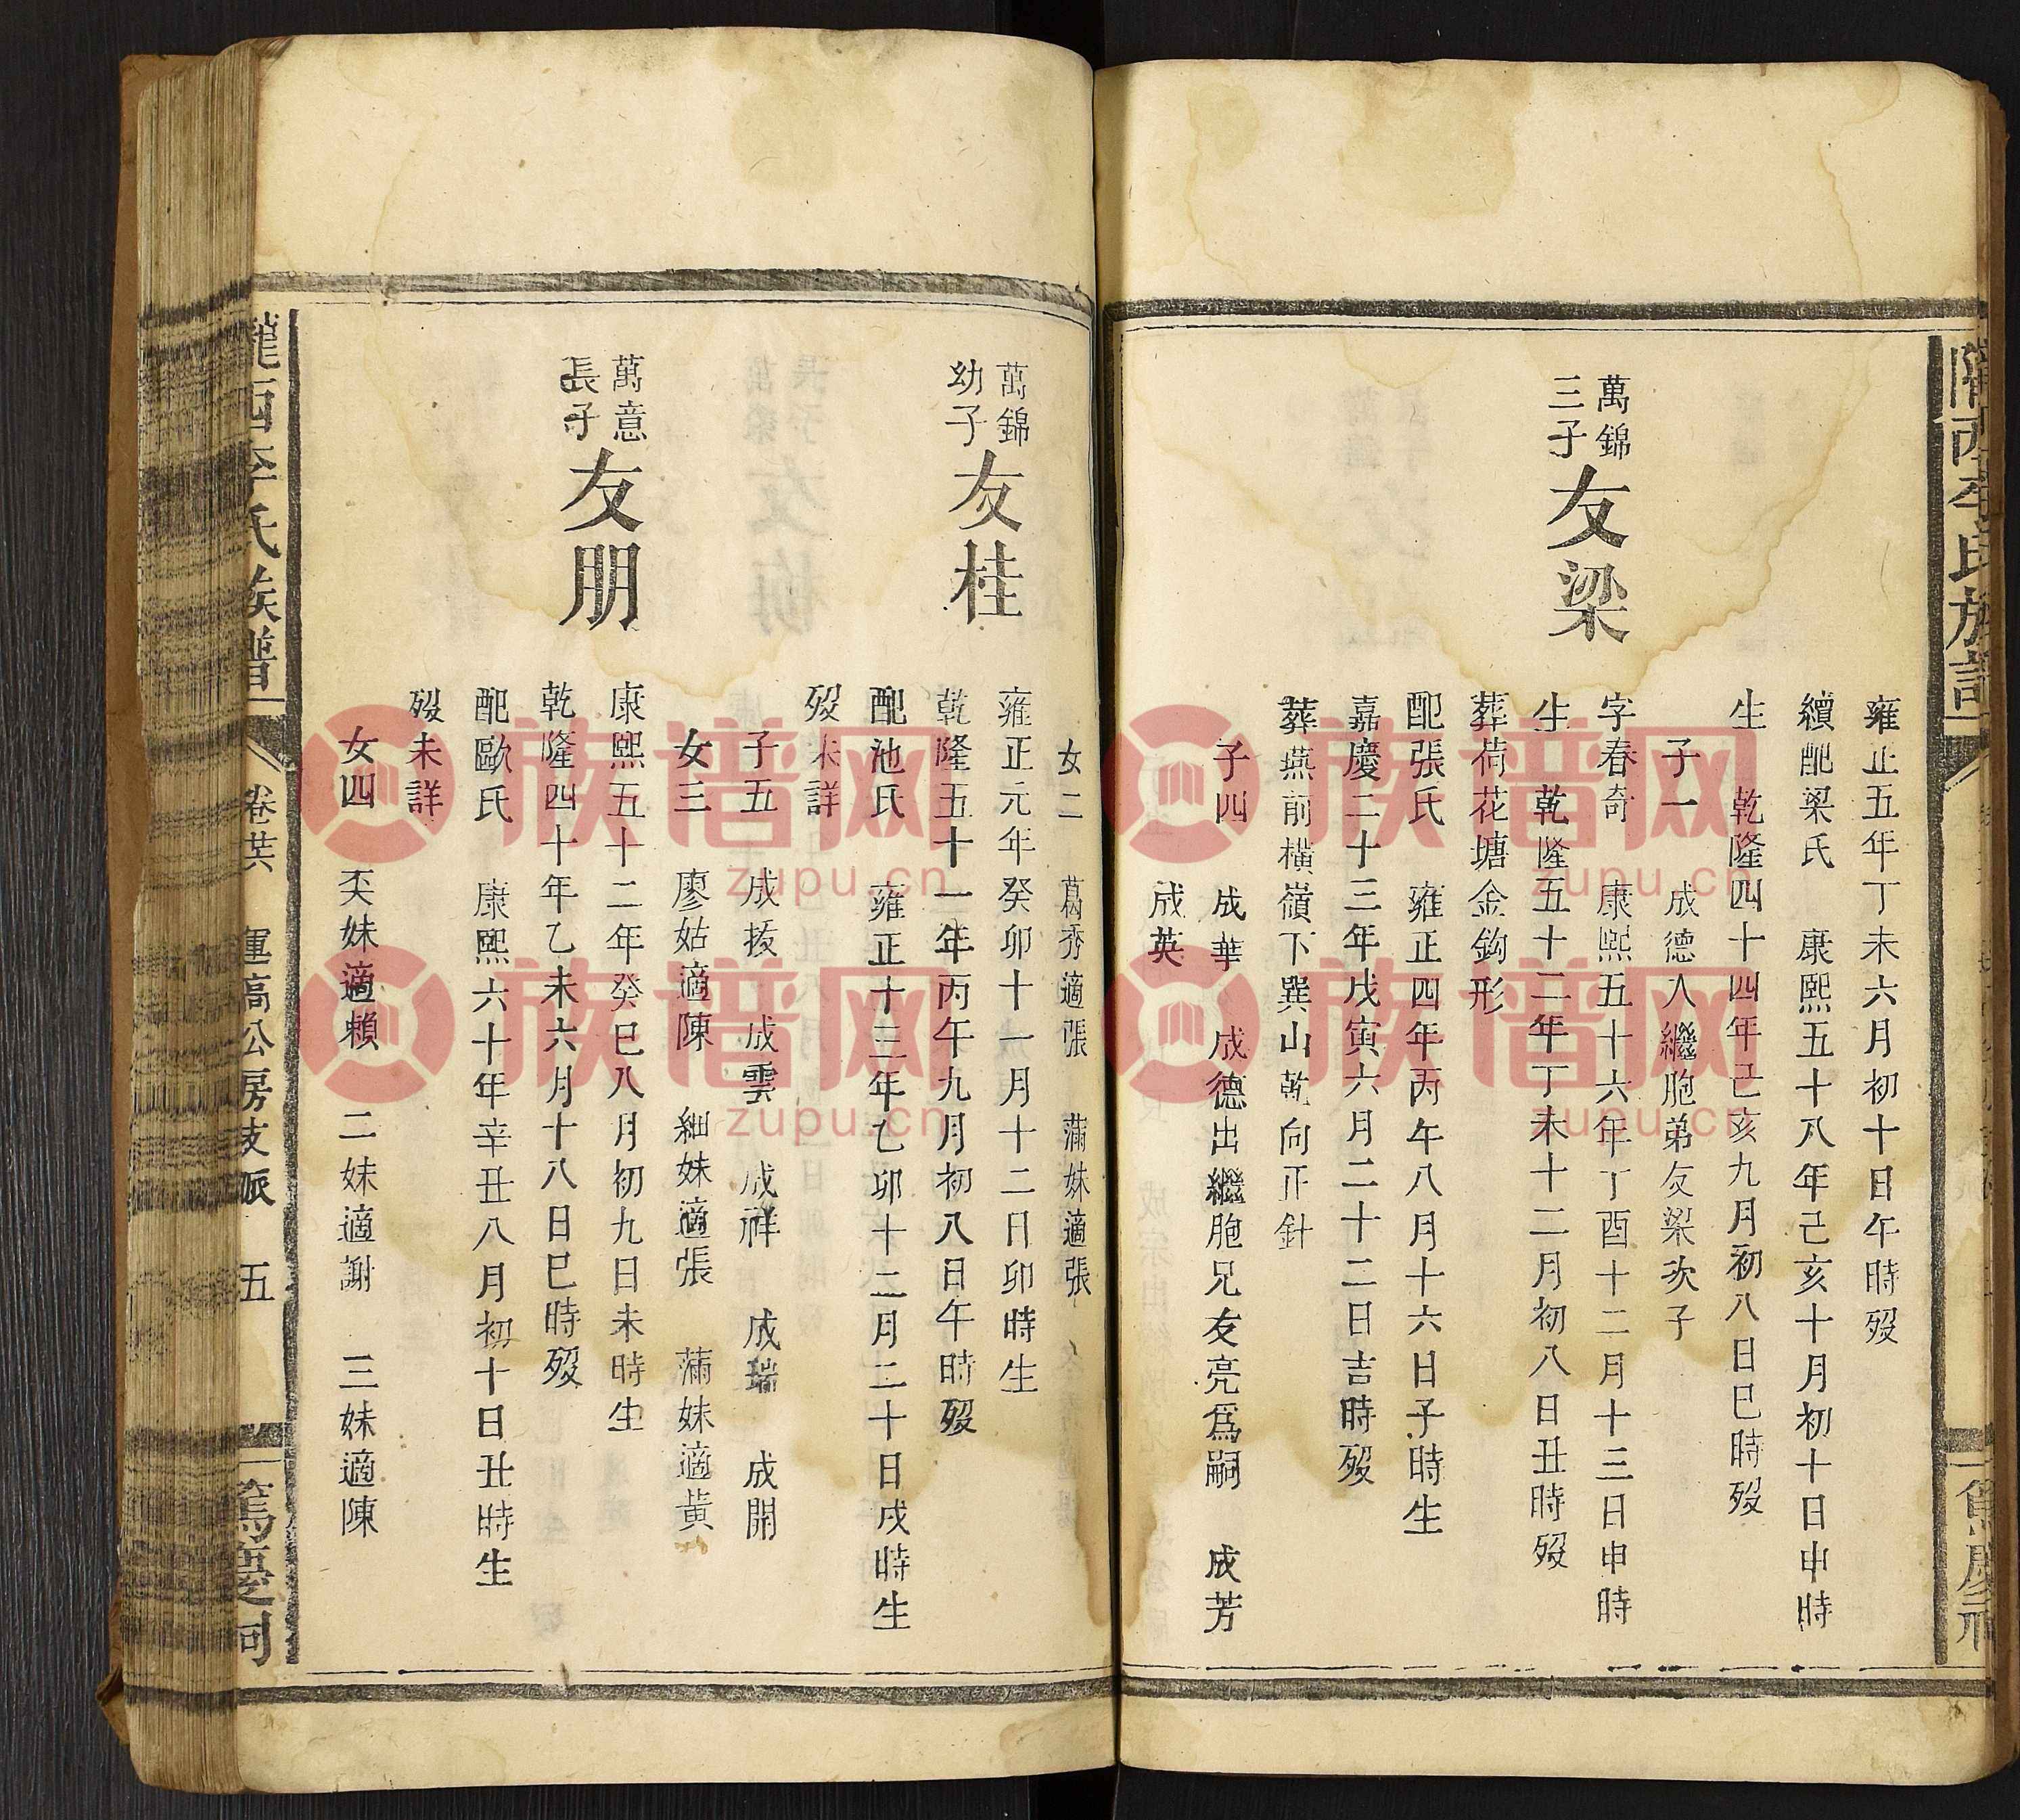 隴西李氏族譜
雍正五年丁未六月初十日午時歿
續配梁氏 康熙五十八年己亥十月初十日申時
生 乾隆四十四年己亥九月初八日巳時歿
子一 成德入繼胞弟友梁次子
萬錦
三子
友梁
字春奇 康熙五十六年丁酉十二月十三日申時
生 乾隆五十二年丁未十二月初八日丑時歿
葬荷花塘金鈎形
配張氏 雍正四年丙午八月十六日子時生
嘉慶二十三年戊寅六月二十二日吉時歿
葬燕前橫嶺下巽山乾向正針
子四 成華 成德出繼胞兄友亮爲嗣 成芳
成英
女二 葛秀適張 滿妹適張
萬錦
幼子
友桂
雍正元年癸卯十一月十二日卯時生
乾隆五十一年丙午九月初八日午時歿
配池氏 雍正十三年乙卯十二月二十日戌時生
歿未詳
子五 成拔 成雲 成祥 成瑞 成開
女三 廖姑適陳 細妹適張 滿妹適黃
萬意
長子
友朋
康熙五十二年癸巳八月初九日未時生
乾隆四十年乙未六月十八日巳時歿
配歐氏 康熙六十年辛丑八月初十日丑時生
歿未詳
女四 奀妹適賴 二妹適謝 三妹適陳
隴西李氏族譜 卷共 運高公房支派 五 篤慶祠
族谱网
zupu.cn
族谱网
zupu.cn
族谱网
zupu.cn
族谱网
zupu.cn